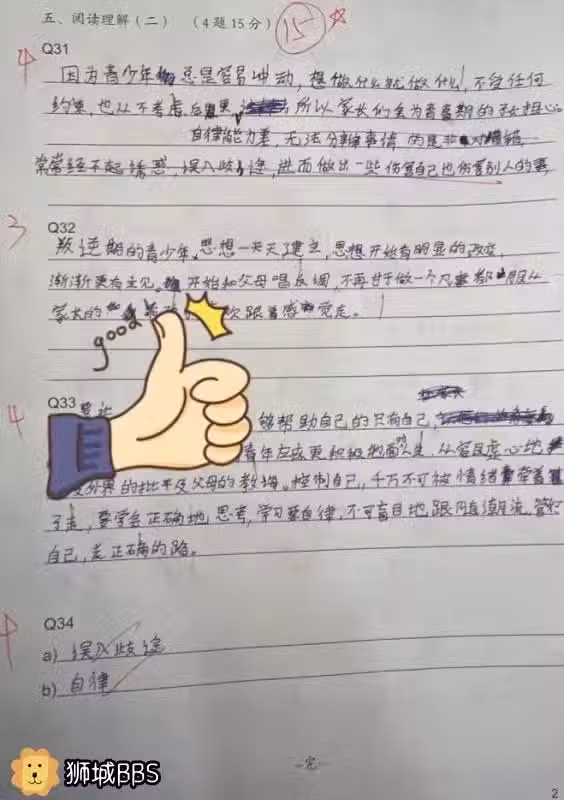 五、阅读理解（二） （4题15分） 15
4
Q31
因为青少年总是容易冲动，想做什么就做什么，不受任何
约束，也从不考虑后果，所以家长们会为青春期的子女担心。
自律能力差，无法分辨事情的是非对错，
常常经不起诱惑，误入歧途，进而做出一些伤害自己也伤害别人的事
3
Q32
叛逆期的青少年，思想一天天建立，思想开始有明显的改变，
渐渐更有主见。开始和父母唱反调，不再甘于做一个凡事都服从
家长的 次跟着感觉走。
good
4
Q33
够帮助自己的只有自己，
青年应该更积极地面对人生，从容且虚心地
外界的批评及父母的教诲。控制自己，千万不可被情绪牵着
走，要学会正确地思考，学习要自律，不可盲目地跟随潮流，管好
自己，走正确的路。
4
Q34
a) 误入歧途
b) 自律
-完-
狮城BBS
2